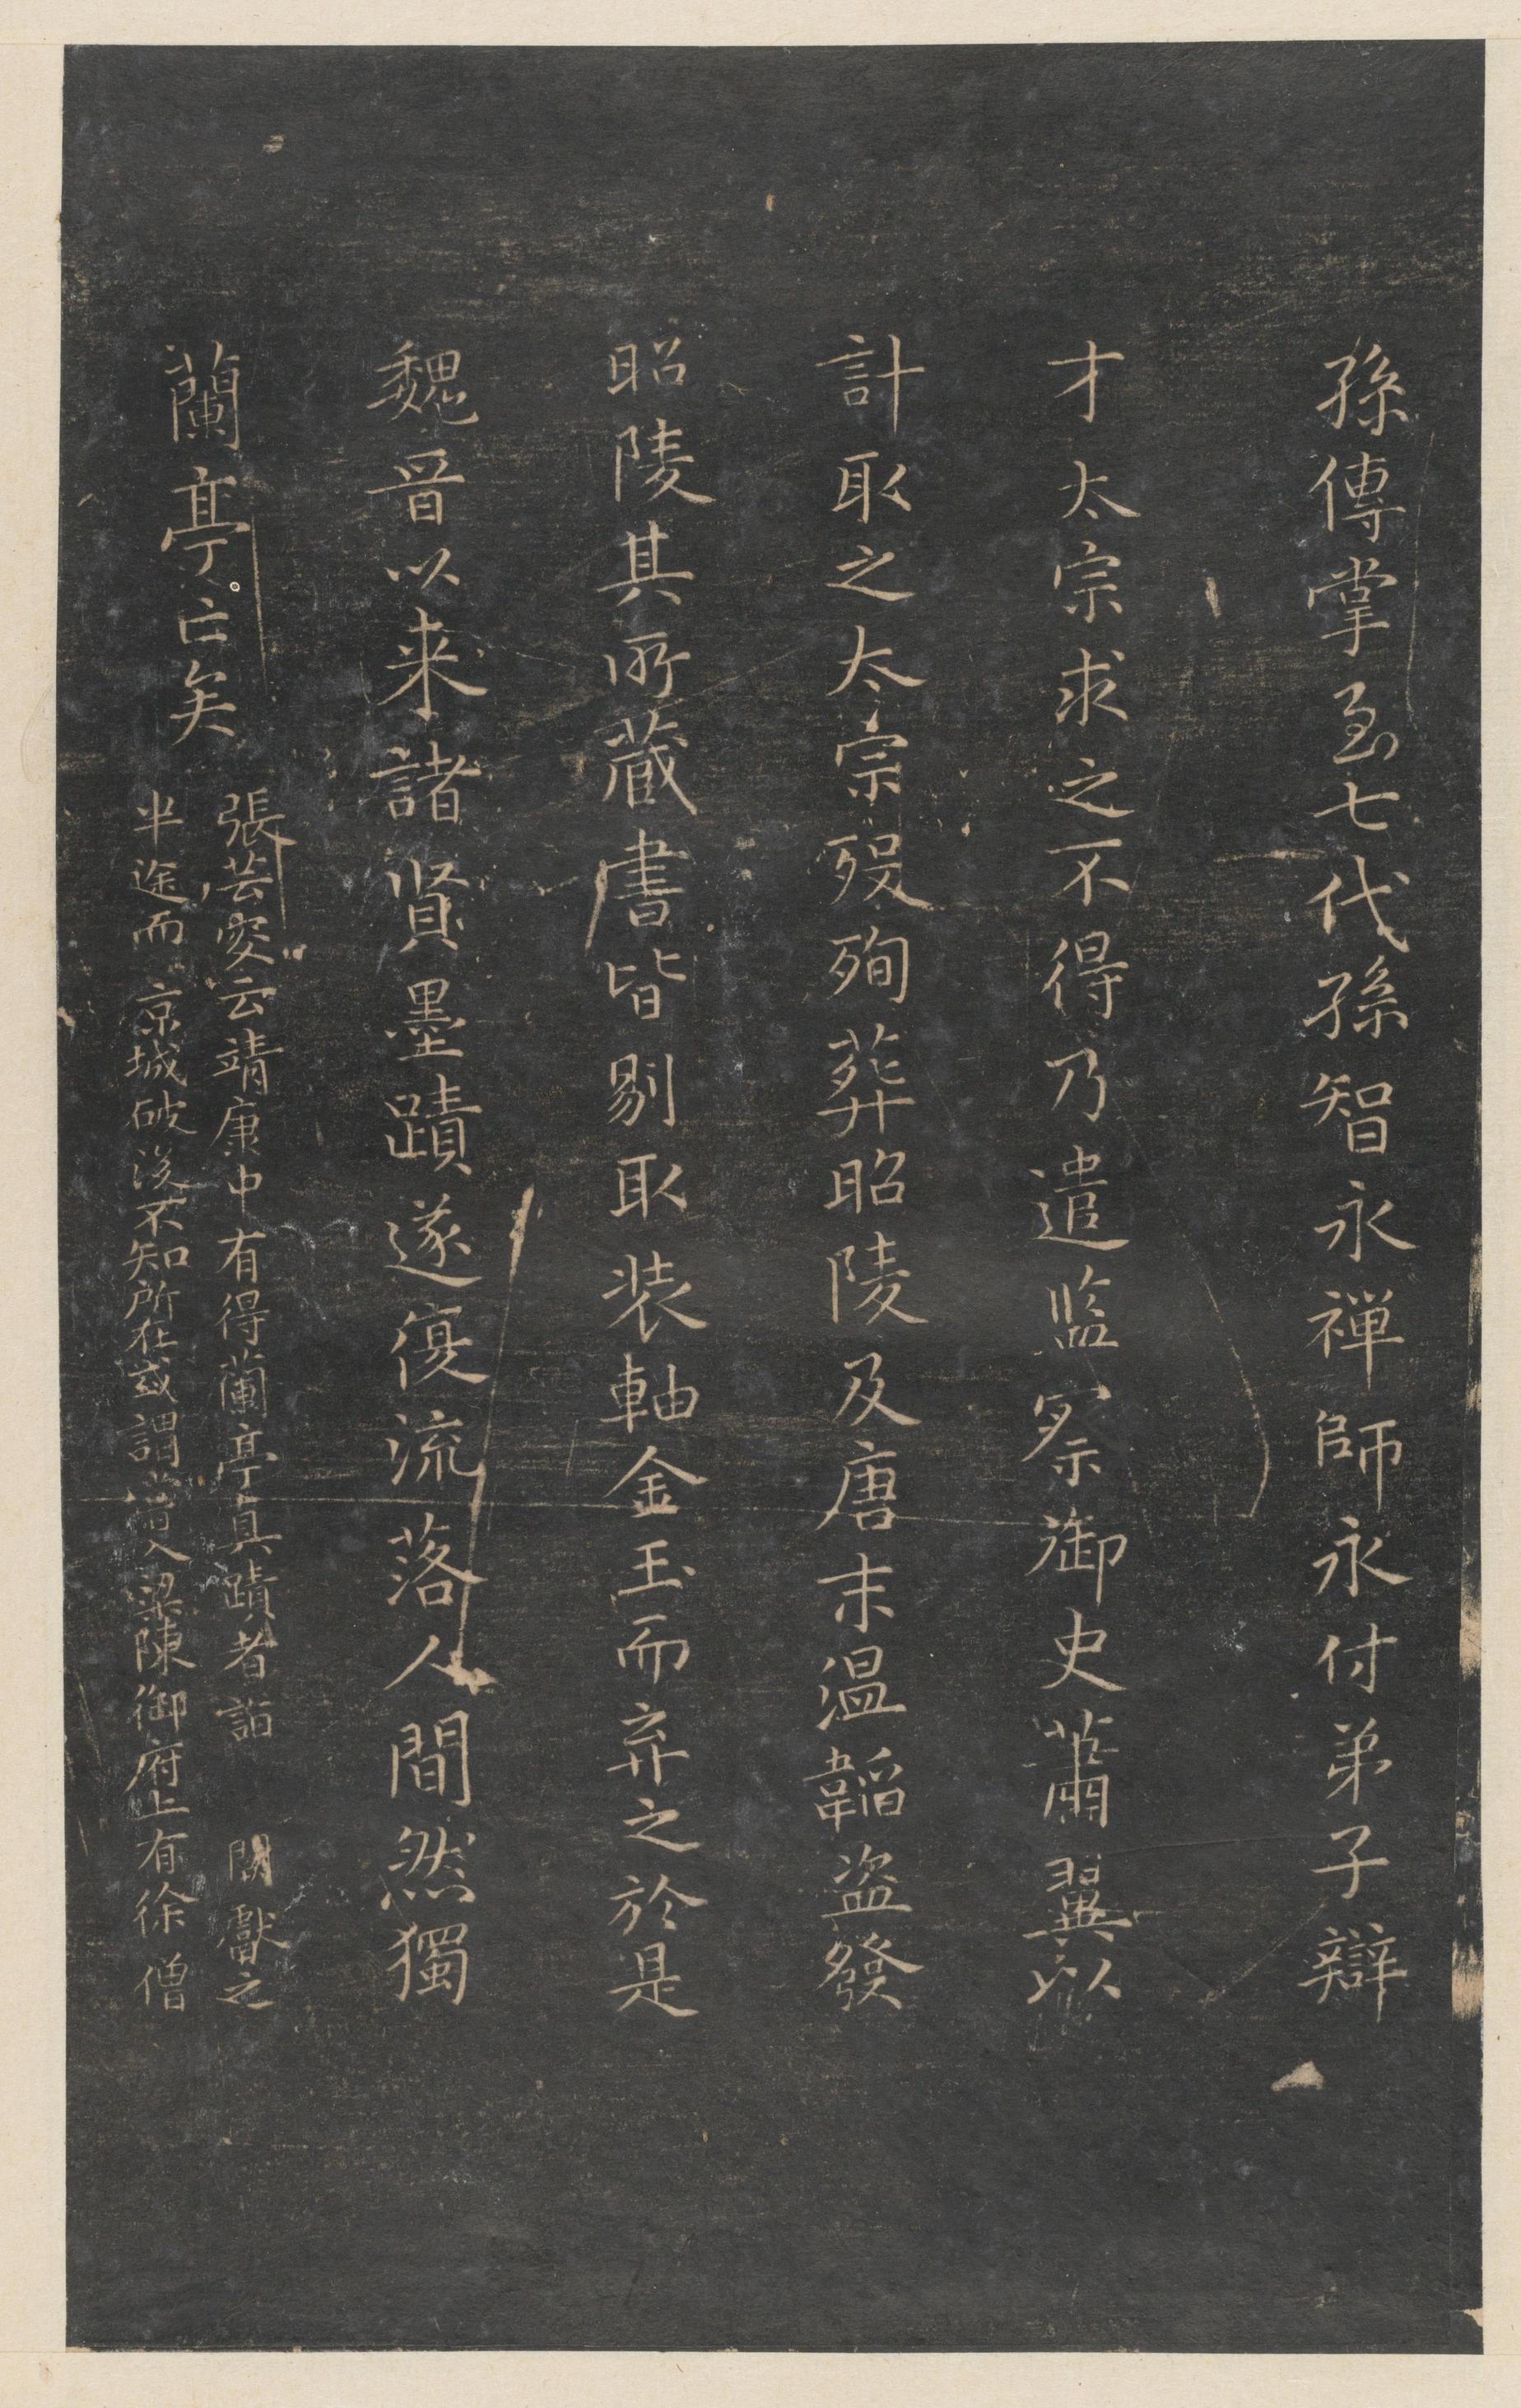 孫傳掌至七代孫智永禪師永付弟子辯
才太宗求之不得乃遣監察御史蕭翼以
計取之太宗歿殉葬昭陵及唐末温韜盜發
昭陵其所藏書皆剔取装軸金玉而弃之於是
魏晉以来諸賢墨蹟遂復流落人間然獨
蘭亭亡矣
張芸叟云靖康中有得蘭亭真蹟者詣 闕獻之
半途而京城破後不知所在或謂曾入梁陳御府上有徐僧